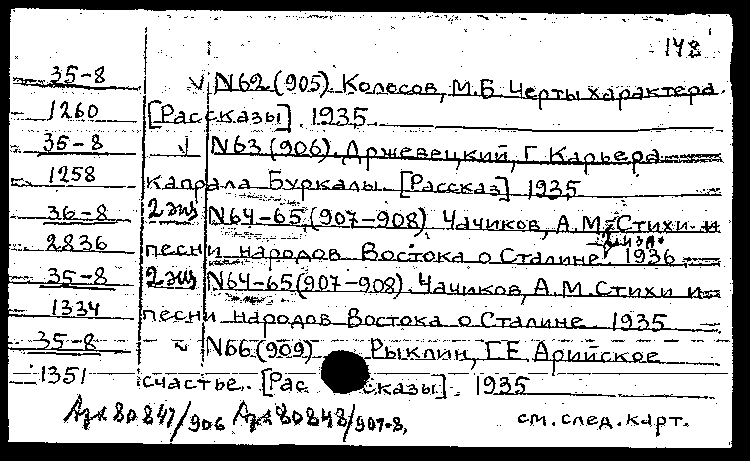 148
35-8 √ N62 (905). Колосов, М.Б. Черты характера.
1260 [Рассказы]. 1935.
35-8 √ N63 (906). Држевецкий, Г. Карьера
1258 капрала Буркалы. [Рассказ] 1935
36-8 2 экз N64-65 (907-908) Чачиков, А.М. Стихи и
2 изд.
2836 песни народов Востока о Сталине. 1936
35-8 2 экз N64-65 (907-908). Чачиков, А.М. Стихи и
1334 песни народов Востока о Сталине. 1935
35-8 √ N66 (909) Рыклин, Г.Е. Арийское
1351 счастье. [Рассказы]. 1935
80847/906 80848/907-8,
см. след. карт.